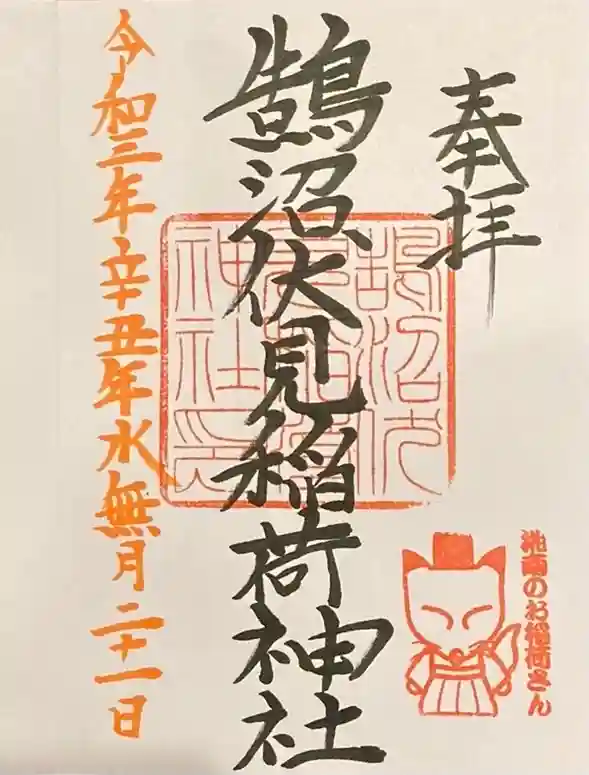 奉拝
鵠沼伏見稲荷神社
鵠沼伏
見稲荷
神社印
湘南のお稲荷さん
令和三年辛丑年水無月二十一日